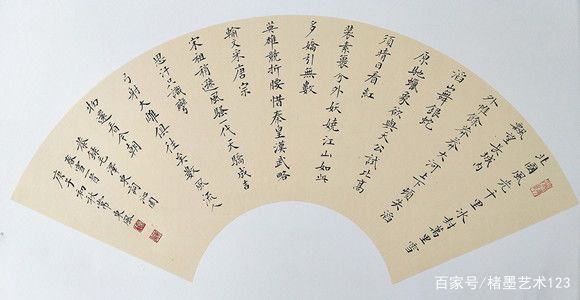 北國風光千里冰封萬里雪
飄望長城内
外惟餘莽莽大河上下頓失滔
滔山舞銀蛇
原馳蠟象欲與天公試比高
須晴日看紅
裝素裹分外妖嬈江山如此
多嬌引無數
英雄競折腰惜秦皇漢武略
輸文采唐宗
宋祖稍遜風騷一代天驕成吉
思汗只識彎
弓射大雕俱往矣數風流人
物還看今朝
恭錄毛澤東詞沁園
春雪一首
庚子初秋
百家号/楮墨艺术123